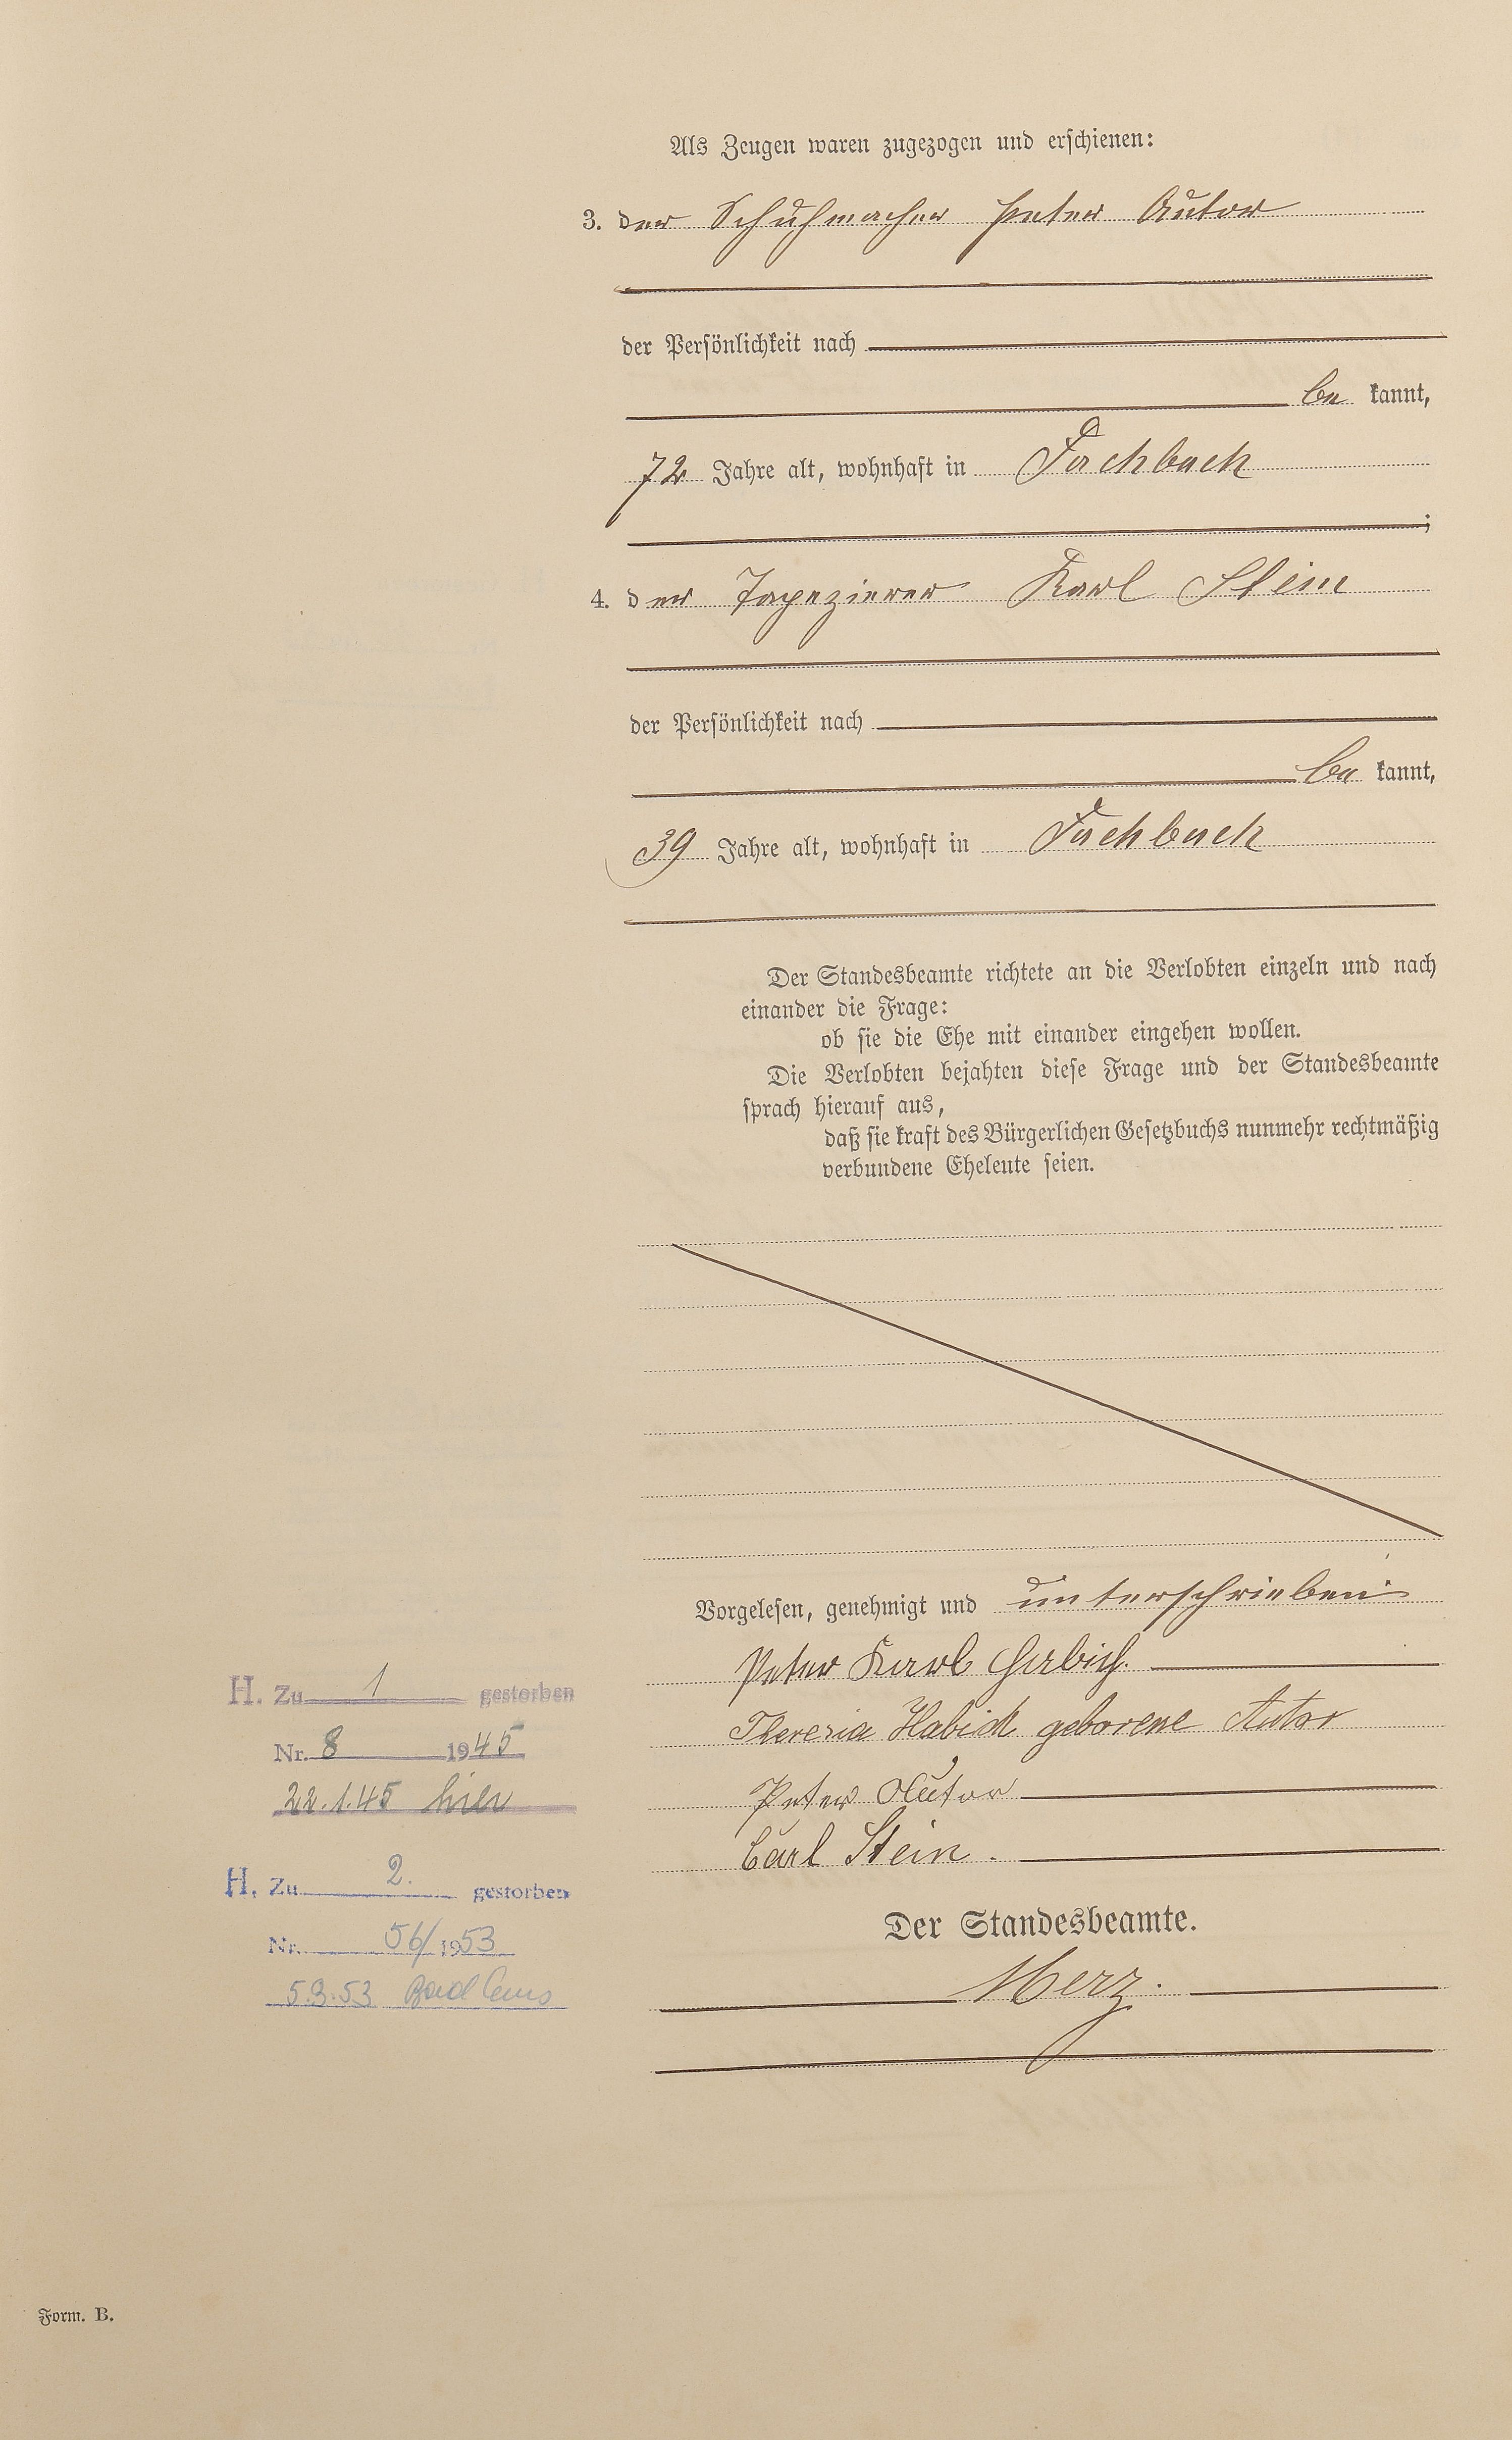 Als Zeugen waren zugezogen und erschienen:
3. der Schuhmacher Peter Autor
der Persönlichkeit nach
be kannt,
72 Jahre alt, wohnhaft in Fachbach
;
4. der Tapezierer Karl Stein
der Persönlichkeit nach
be kannt,
39 Jahre alt, wohnhaft in Fachbach
Der Standesbeamte richtete an die Verlobten einzeln und nach
einander die Frage:
ob sie die Ehe mit einander eingehen wollen.
Die Verlobten bejahten diese Frage und der Standesbeamte
sprach hierauf aus,
daß sie kraft des Bürgerlichen Gesetzbuchs nunmehr rechtmäßig
verbundene Eheleute seien.
Vorgelesen, genehmigt und unterschrieben
Peter Karl Habich.
Theresia Habich geborene Autor
Peter Autor
Carl Stein.
Der Standesbeamte.
Merz.
H. Zu 1 gestorben
Nr. 8 1945
22.1.45 hier
H. Zu 2. gestorben
Nr. 56/1953
5.9.53 Bad Ems
Form. B.